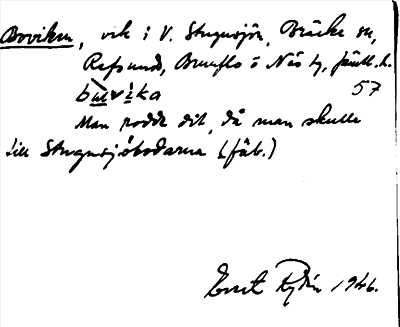 Boviken, vik i V. Stugusjön, Bräcke sn,
Refsund, Brunflo o Näs tg, Jämtl. l.
57
Man rodde dit, då man skulle
till Stugusjöbodarna (fäb.)
1946.